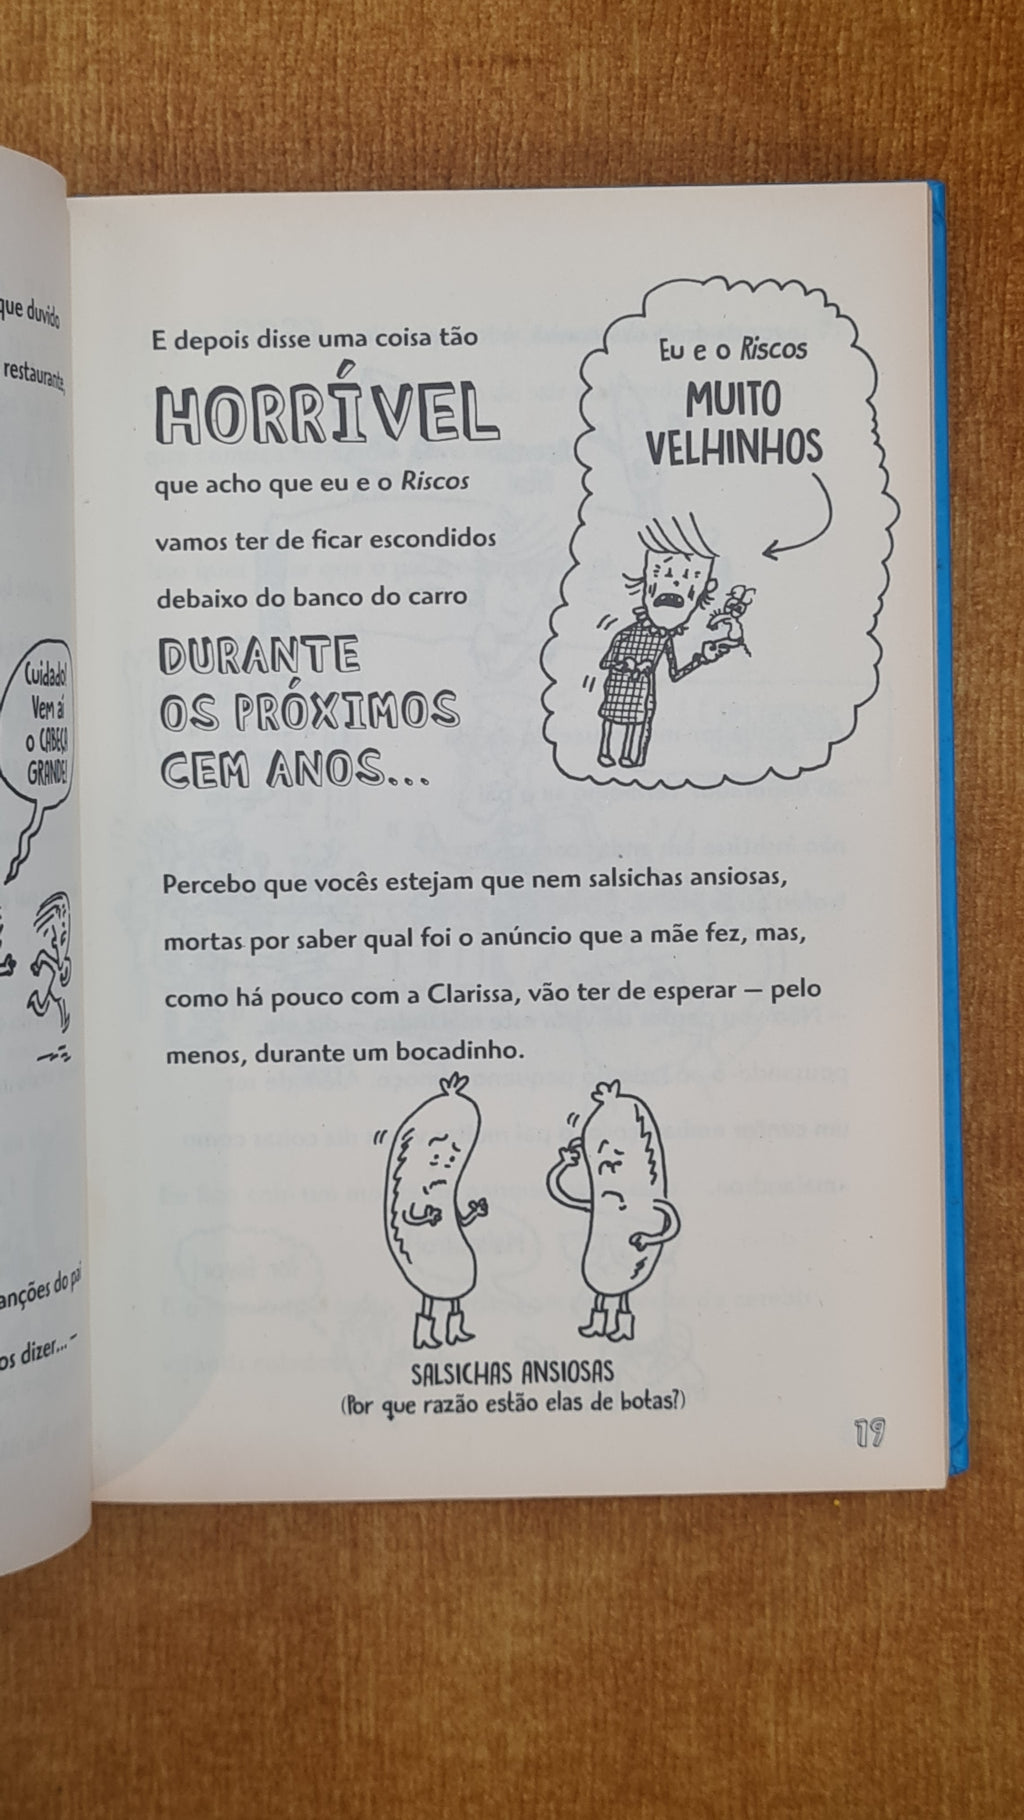 que duvido
restaurante,
Cuidado!
Vem aí
o CABEÇA
GRANDE!
anções do pai
os dizer... –
E depois disse uma coisa tão
HORRÍVEL
que acho que eu e o Riscos
vamos ter de ficar escondidos
debaixo do banco do carro
DURANTE
OS PRÓXIMOS
CEM ANOS...
Eu e o Riscos
MUITO
VELHINHOS
Percebo que vocês estejam que nem salsichas ansiosas,
mortas por saber qual foi o anúncio que a mãe fez, mas,
como há pouco com a Clarissa, vão ter de esperar — pelo
menos, durante um bocadinho.
SALSICHAS ANSIOSAS
(Por que razão estão elas de botas?)
19